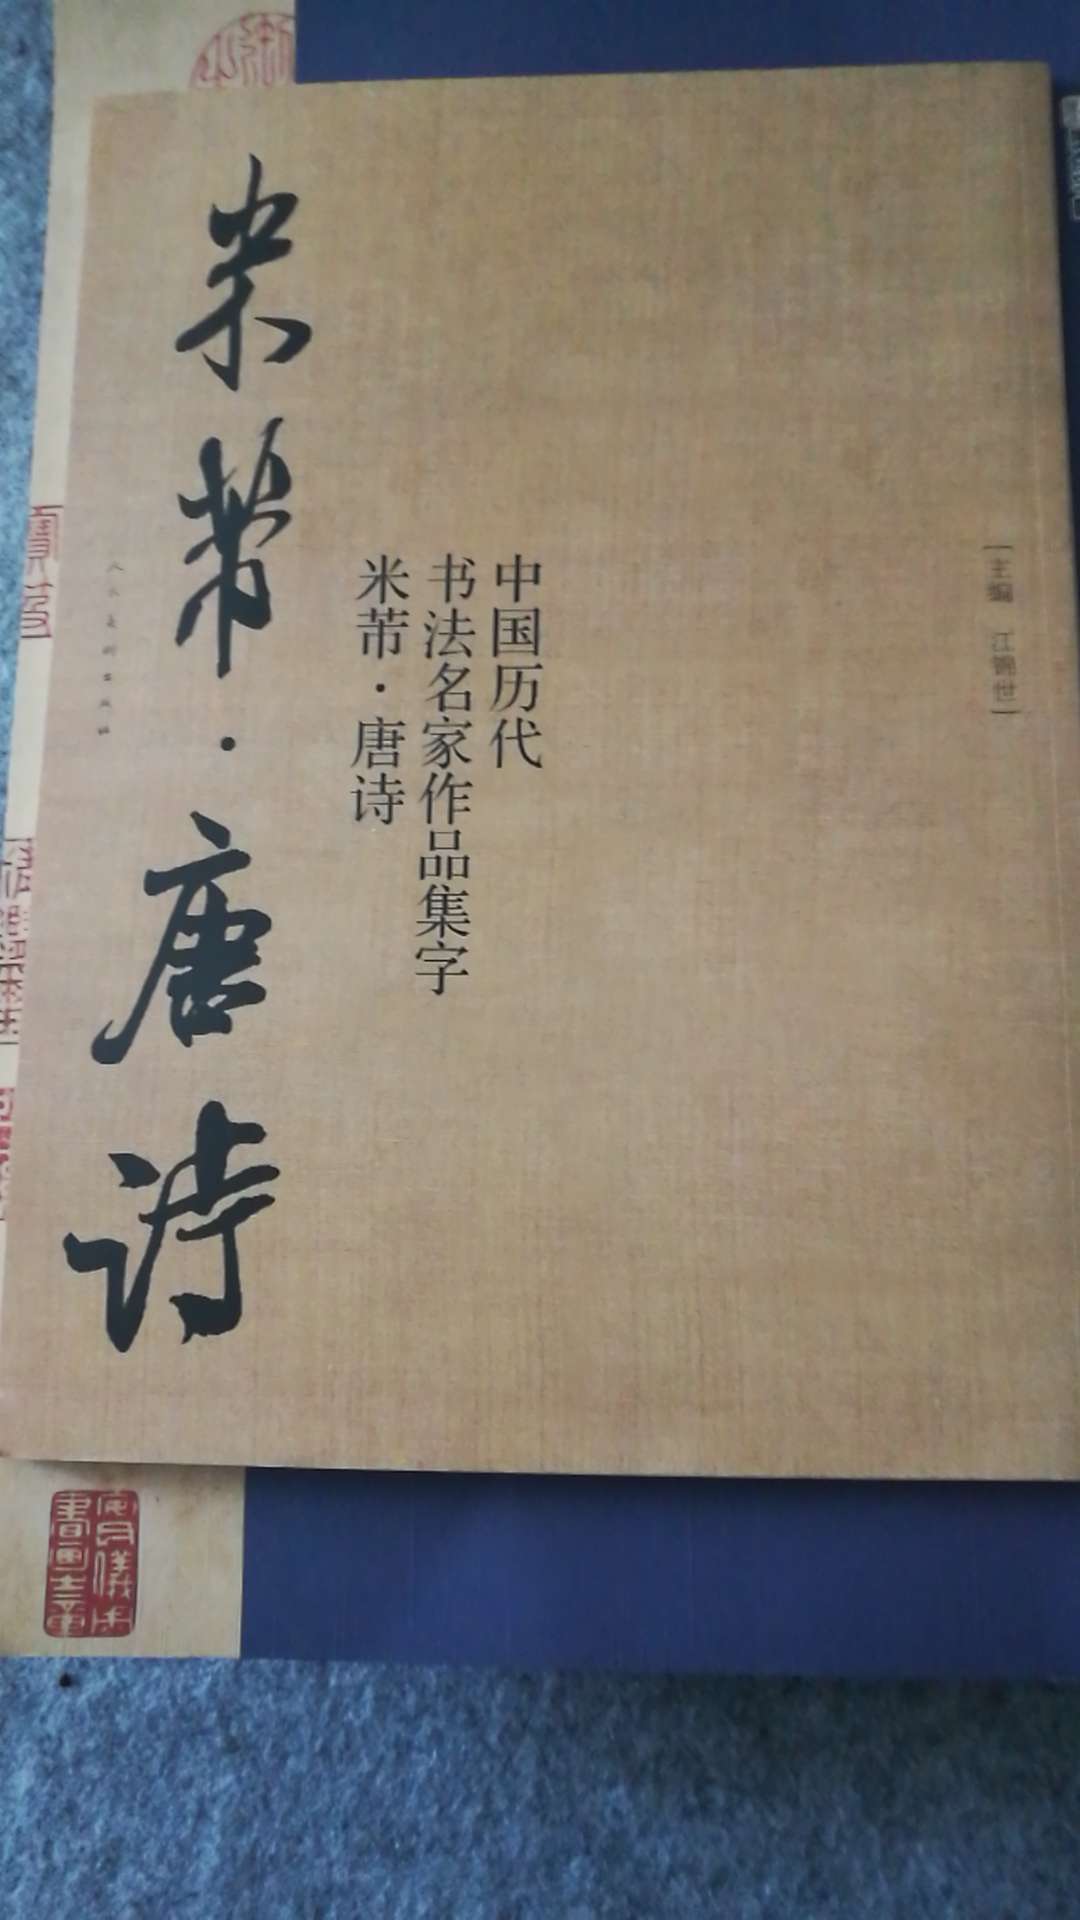 [主编 江锦世]
中国历代
书法名家作品集字
米芾·唐诗
米芾·唐诗
人民美術出版社